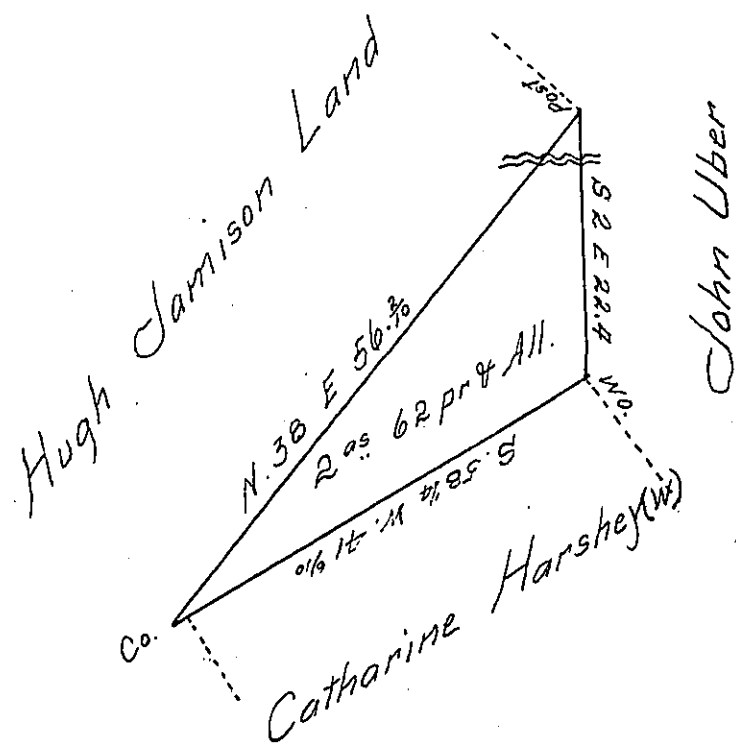 Hugh Jamison Land
Post
John Uber
S 2 E 22.4
N. 38 E 56.2/10
2 as 62 pr & All.
W.O.
S. 58 1/4 W. 41 6/10
Co.
Catharine Harshey (W)